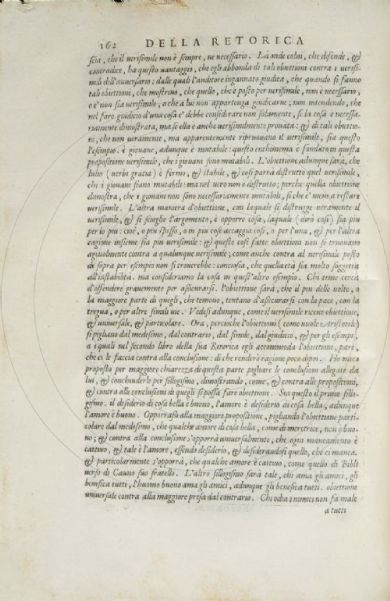 162 DELLA RETORICA
scia, che il verisimile non è sempre, ne necessario. La onde colui, che difende, &
contradice, ha questo vantaggio, che egli abbonda di tali obiettioni contra i verisi-
mili dell'avversario: dalle quali l'auditore ingannato giudica, che quando si fanno
tali obiettioni, che mostrino, che quello, che è posto per verisimile, non è necessario,
o e' non sia verisimile, o che a lui non appartenga giudicarne; non intendendo, che
nel fare giudicio d'una cosa e' debbe considerare non solamente, se la cosa è necessa-
riamente dimostrata, ma se ella è anche verisimilmente provata: & di tali obiettio-
ni, che non veramente, ma apparentemente ripruovano il verisimile, sia questo
l'esempio. è giovane, adunque è mutabile: questo enthimema è fondato in questa
propositione verisimile, che i giovani sono mutabili. L'obiettione adunque sarà, che
Iulio (verbi gratia) è fermo, & stabile, & così parrà distrutto quel verisimile,
che i giovani siano mutabili: ma nel vero non è distrutto; perche quella obiettione
dimostra, che i giovani non sono necessariamente mutabili, si che e' meni a restare
verisimile. L'altra maniera d'obiettione, con la quale si distrugge veramente il
verisimile, & si scioglie l'argomento, è opporre cosa, laquale (dirò così) sia più
per lo più: cioè, o più spesso, o in più cose accaggia così, o per l'una, & per l'altra
cagione insieme sia più verisimile: & queste così fatte obiettioni non si truovano
agiuolmente contra a qualunque verisimile; come anche contra al verisimile posto
di sopra per esempio non si troverebbe: conciosia, che quella età sia molto soggetta
all'instabilità. ma consideriamo la cosa in quest'altro esempio. Chi teme cerca
d'offendere gravemente per assicurarsi. l'obiettione sarà, che il più delle volte, o
la maggiore parte di quegli, che temono, tentano d'assicurarsi con la pace, con la
tregua, o per altre simili vie. Vedesi adunque, come il verisimile riceve obiettione,
& universale, & particolare. Ora, percioche l'obiettioni (come vuole Aristotele)
si pigliano dal medesimo, dal contrario, dal simile, dal giudicio, & per gli esempi,
a i quali nel secondo libro della sua Retorica egli accommoda l'obiettione, pare,
che ei le faccia contra alla conclusione: di che rendérò ragione poco dipoi. Ho meco
proposto per maggiore chiarezza di questa parte pigliare le conclusioni allegate da
lui, & conchiuderle per sillogismo, dimostrando, come, & contra alle propositioni,
& contra alle conclusioni di quegli si possa fare obiettione. Sia questo il primo sillo-
gismo. il desiderio di cosa bella è buono, l'amore è desiderio di cosa bella, adunque
l'amore è buono. Opporrassi alla maggiore propositione, pigliando l'obiettione parti-
colare dal medesimo, che qualche amore di cosa bella, come di meretrice, non è buo-
no; & contra alla conclusione s'opporrà universalmente, che ogni mancamento è
cattivo, & tale è l'amore, essendo desiderio, & desiderandosi quello, che ci manca.
& particolarmente s'opporrà, che qualche amore è cattivo, come quello di Bibli
verso di Cauno suo fratello. L'altro sillogismo sarà tale, chi ama gli amici, gli
benefica tutti, l'huomo buono ama gli amici, adunque gli benefica tutti. obiettione
universale contra alla maggiore presa dal contrario. Chi odia i nemici non fa male
a tutti